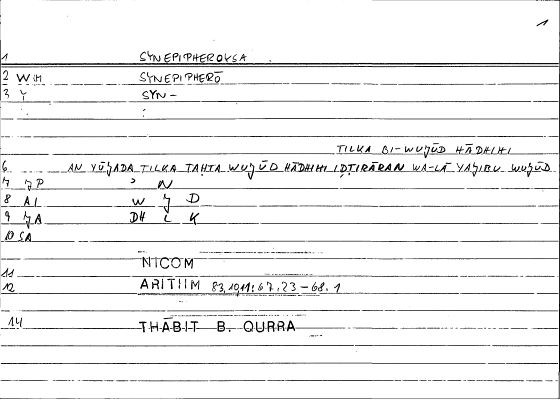 1
1 SYNEPIPHEROYSA .
2 WH SYNEPIPHERŌ
3 Y SYN-
: :
TILKA BI-WUǦŪD HĀDHIHI
6 AN YŪǦADA TILKA TAHTA WUǦŪD HĀDHIHI IḌṬIRĀRAN WA-LĀ YAǦIBU WUǦŪD
7 ǦP ʾ N
8 AI W Ǧ D
9 ǦA DH L K
10 SA
NICOM
11
12 ARITIIM 83,1911: 67.23-68.1
14 THĀBIT B. QURRA